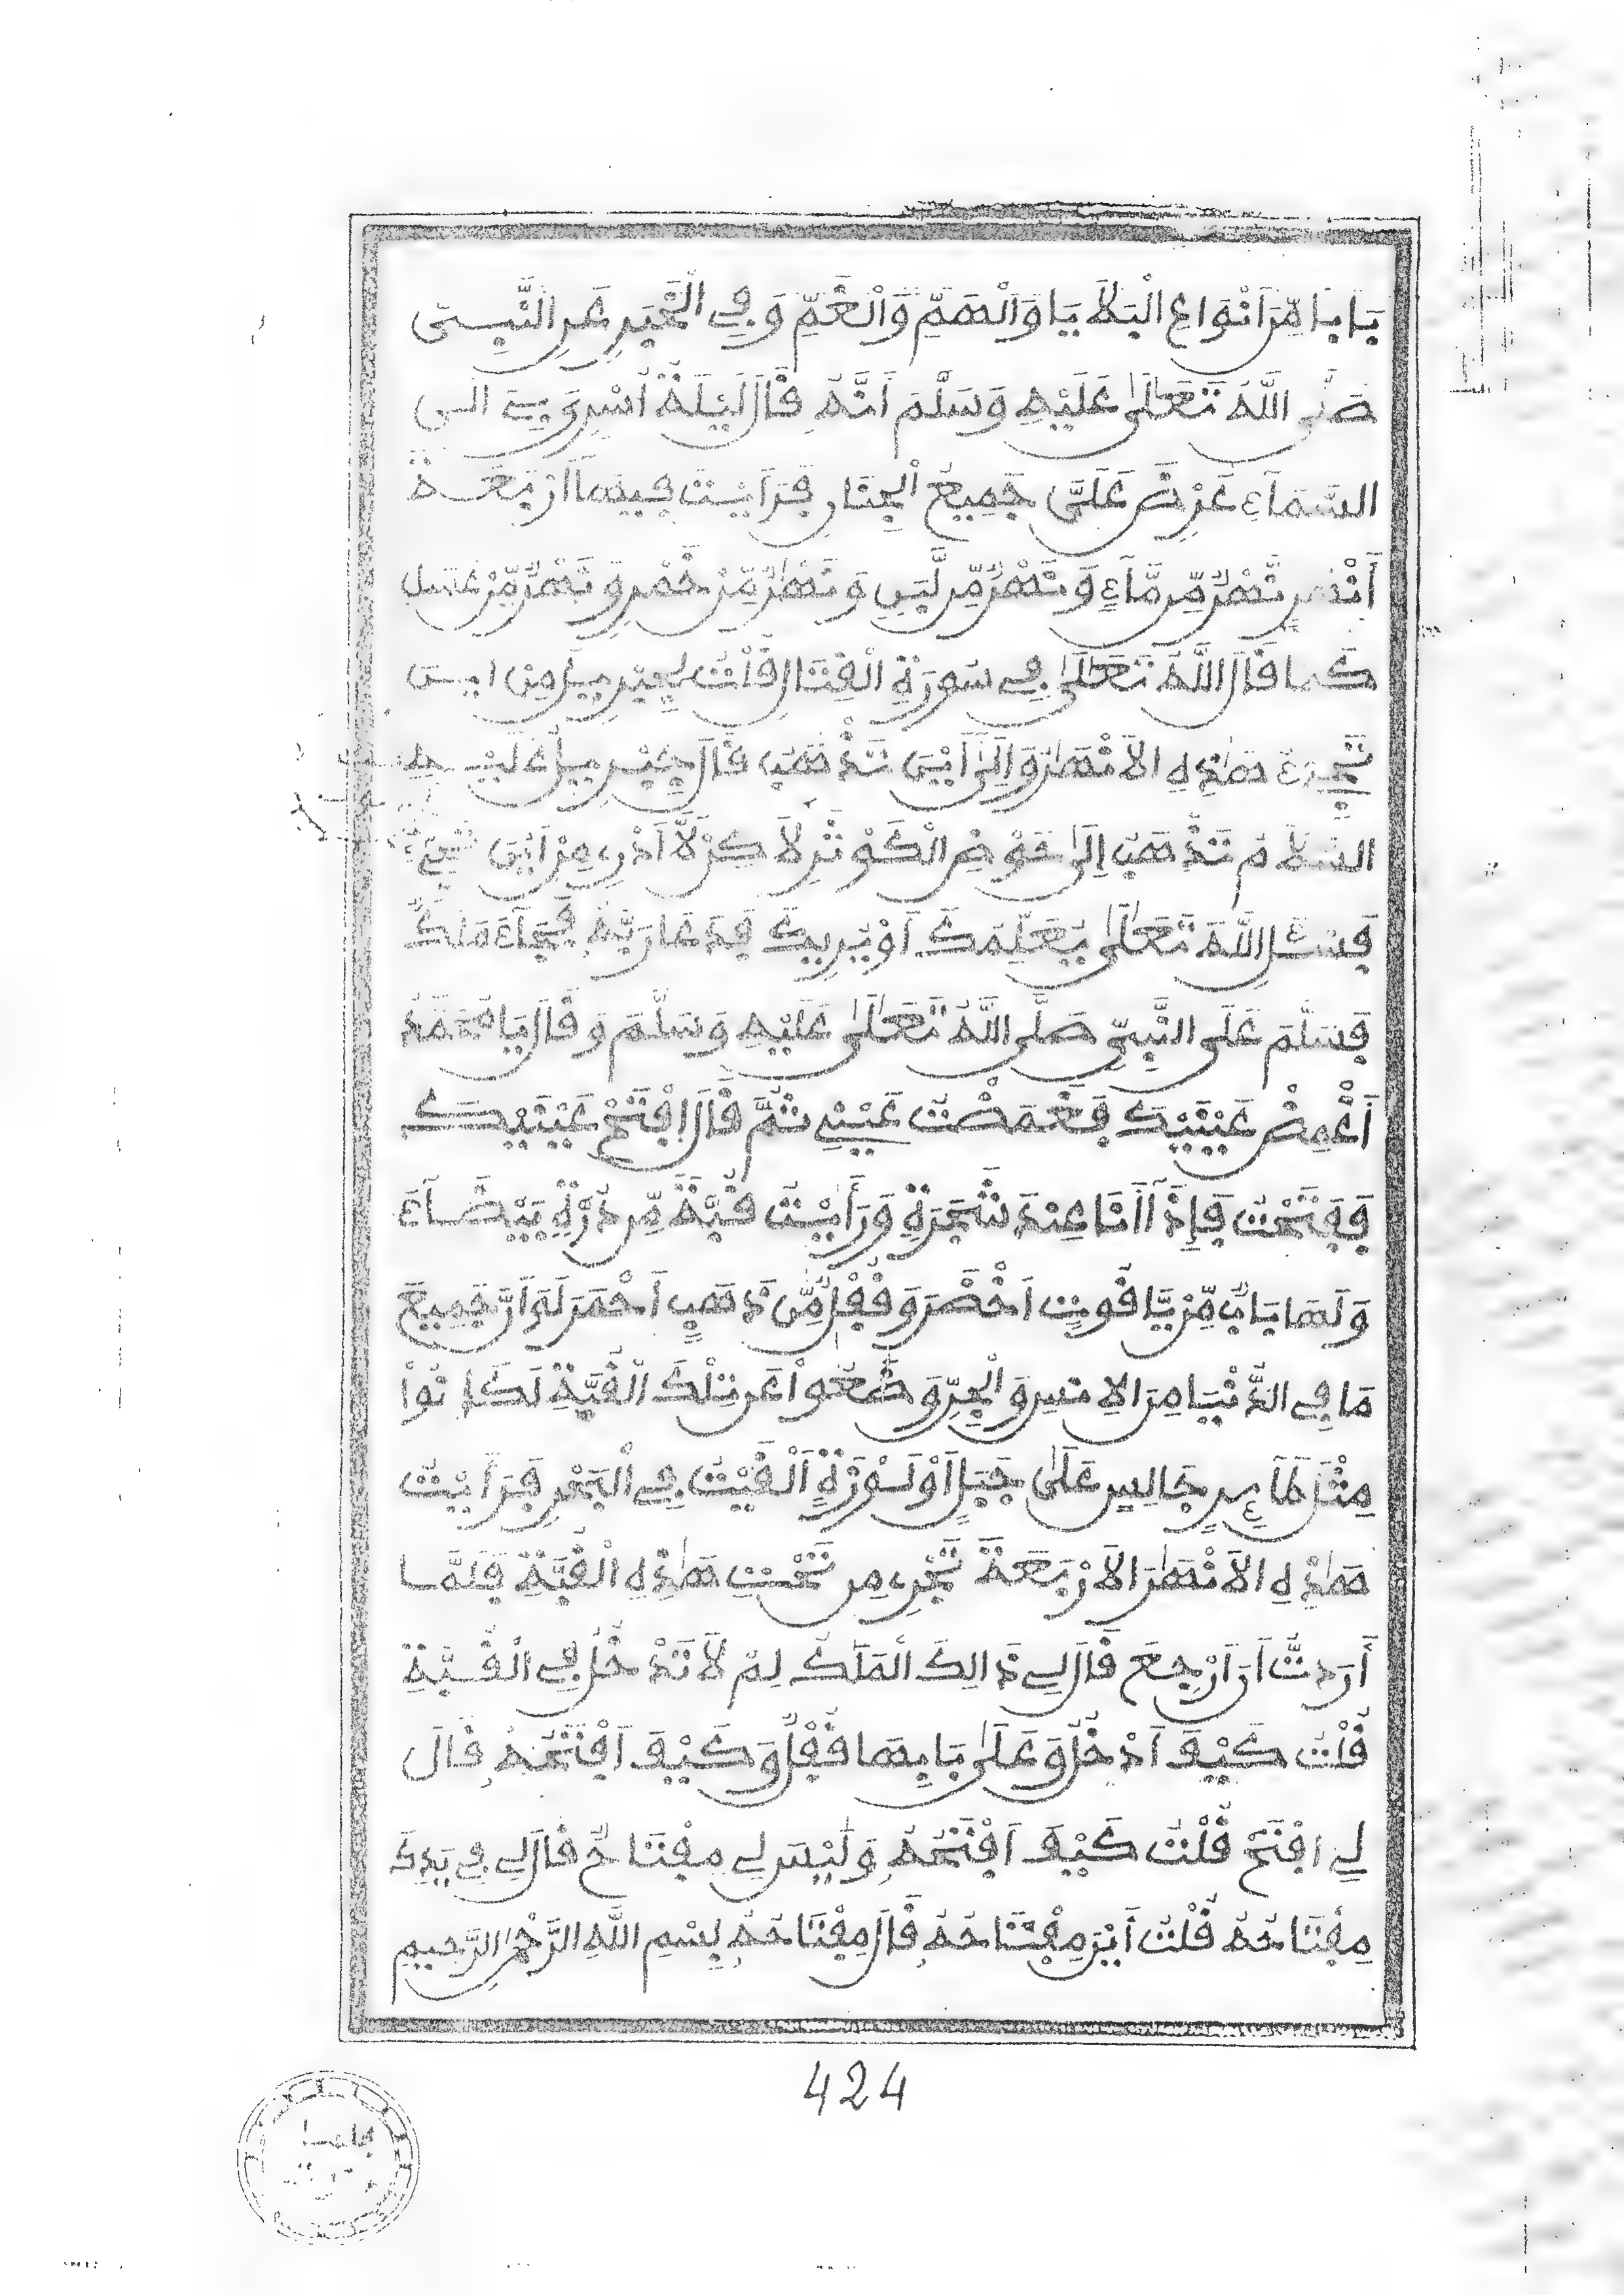 بَابًا مِّنَ اَنْوَاعِ الْبَلَايَا وَالْهَمِّ وَالْغَمِّ وَفِي الْخَبَرِ عَنِ النَّبِيّ
صَلَّى اللَّهُ تَعَالَى عَلَيْهِ وَسَلَّمَ اَنَّهُ قَالَ لَيْلَةً اُسْرِيَ بِي الَى
السَّمَآءِ عَرْضَ عَلَيَّ جَمِيعُ الْجِنَانِ فَرَاَيْتُ فِيهَا اَرْبَعَةَ
أَنْهٰرٍ نَهْرٌ مِّن مَّآءٍ وَنَهْرٌ مِّن لَّبَنٍ وَنَهْرٌ مِّنْ خَمْرٍ وَنَهْرٌ مِّنْ عَسَلٍ
كَمَا قَالَ اللَّهُ تَعَالَى فِي سُورَةِ الْقِتَالِ قُلْتُ لِجِبْرِيلَ مِنْ ايْنَ
تَجْرِي هَٰذِهِ الْاَنْهَٰرُ وَاِلَىٰ اَيْنَ تَذْهَبُ قَالَ جِبْرِيلُ عَلَيْهِ
السَّلَامُ تَذْهَبُ اِلَىٰ حَوْضِ الْكَوْثَرِ لَاكِنْ لَّا اَدْرِي مِنْ اَيْنَ تَجِيءُ
فَسْئَلِ اللَّهَ تَعَالَىٰ يُعَلِّمَكَ اَوْ يُرِيكَ فَدَعَا رَبَّهُ فَجَآءَ مَلَكٌ
فَسَلَّمَ عَلَى النَّبِيِّ صَلَّى اللَّهُ تَعَالَىٰ عَلَيْهِ وَسَلَّمَ وَقَالَ يَا مُحَمَّدُ
أَغْمِضْ عَيْنَيْكَ فَغَمَضْتُ عَيْنَيَّ ثُمَّ قَالَ افْتَحْ عَيْنَيْكَ
فَفَتَحْتُ فَاِذَآ اَنَا عِنْدَ شَجَرَةٍ وَرَأَيْتُ قُبَّةً مِّن دُرَّةٍ بَيْضَآءَ
وَلَهَا بَابٌ مِّنْ يَّاقُوتٍ اَخْضَرَ وَقُفْلٌ مِّن ذَهَبٍ اَحْمَرَ لَوْ اَنَّ جَمِيعَ
مَا فِي الدُّنْيَا مِنَ الْاِنسِ وَالْجِنِّ وَضَعُوا عَن تِلْكَ الْقُبَّةِ لَكَانُواْ
مِثْلَ طَآئِرٍ جَالِسٍ عَلَىٰ جَبَلٍ اَوْ اَلْقَيْتُ فِي الْبَحْرِ فَرَاَيْتُ
هَٰذِهِ الْاَنْهَٰرَ الْاَرْبَعَةَ تَجْرِي مِن تَحْتِ هَٰذِهِ الْقُبَّةِ فَلَمَّا
أَرَدتُّ اَنَ اَرْجِعَ قَالَ لِي ذَالِكَ الْمَلَكُ لِمَ لَا تَدْخُلُ فِي الْقُبَّةِ
قُلْتُ كَيْفَ اَدْخُلُ وَعَلَىٰ بَابِهَا قُفْلٌ وَكَيْفَ اَفْتَحُهُ قَالَ
لِي افْتَحْ قُلْتُ كَيْفَ اَفْتَحُهُ وَلَيْسَ لِي مِفْتَاحٌ قَالَ لِي فِي يَدِكَ
مِفْتَاحُهُ قُلْتُ أَيْنَ مِفْتَاحُهُ قَالَ مِفْتَاحُهُ بِسْمِ اللَّهِ الرَّحْمٰنِ الرَّحِيمِ
424